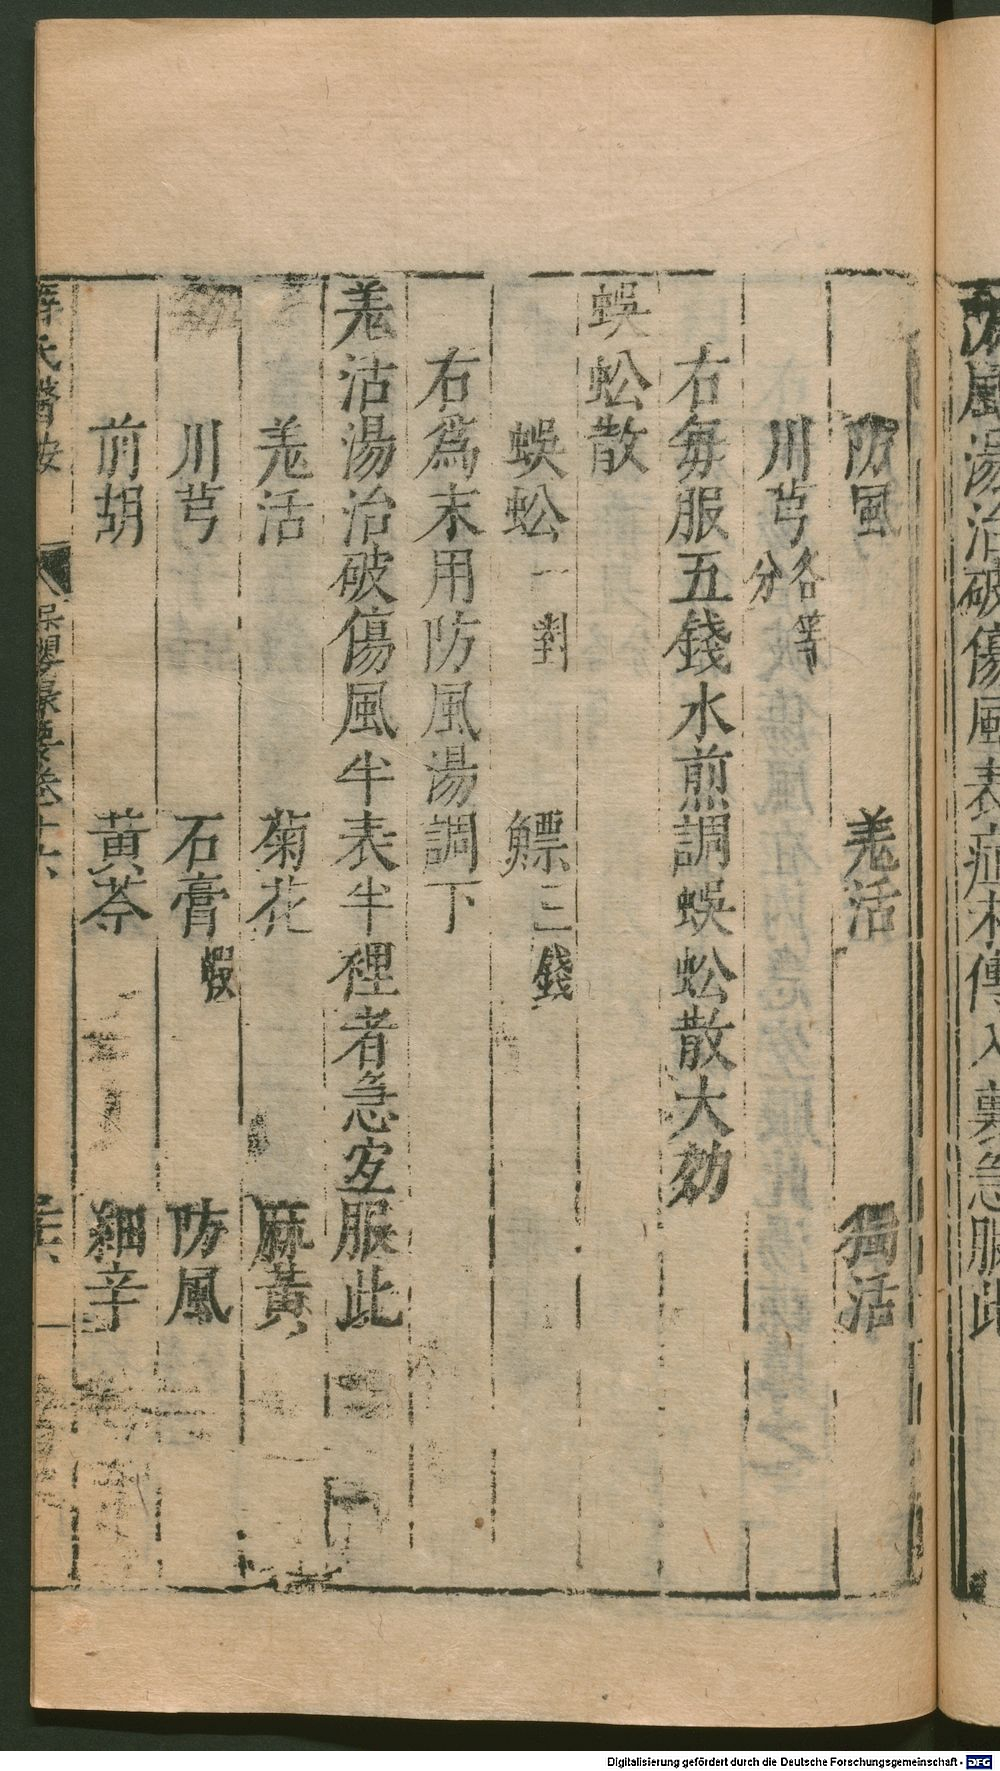 風湯治破傷風表症未傳入裏急服此
防風 羗活 獨活
川芎各等分
右每服五錢水煎調蜈蚣散大効
蜈蚣散
蜈蚣一對 鰾三錢
右爲末用防風湯調下
羗沽湯治破傷風半表半裡者急宜服此
羗活 菊花 麻黃
川芎 石膏煅 防風
前胡 黃芩 細辛
薛氏醫按 保嬰撮要卷十六
Digitalisierung gefördert durch die Deutsche Forschungsgemeinschaft - DFG